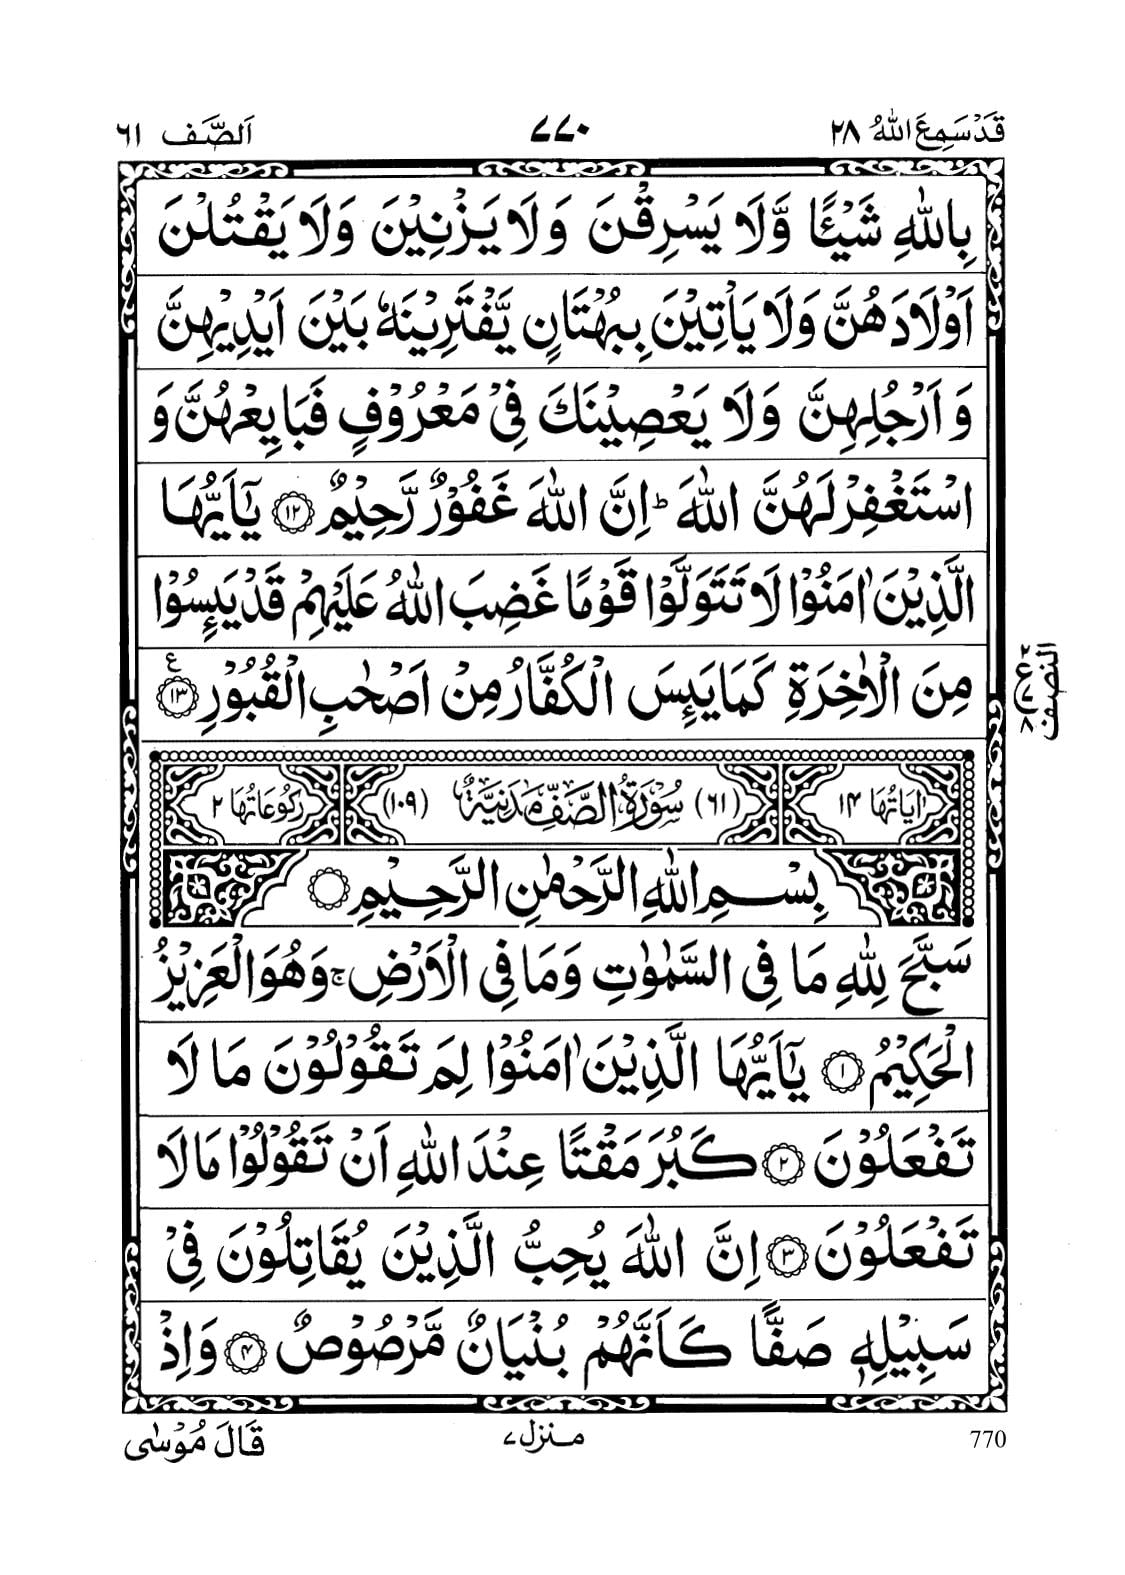 قَدْ سَمِعَ اللّٰهُ ۲۸
۷۷۰
اَلصَّف ۶۱
بِاللّٰهِ شَيْـًٔا وَّلَا يَسْرِقْنَ وَلَا يَزْنِيْنَ وَلَا يَقْتُلْنَ
اَوْلَادَهُنَّ وَلَا يَاْتِيْنَ بِبُهْتَانٍ يَّفْتَرِيْنَهٗ بَيْنَ اَيْدِيْهِنَّ
وَاَرْجُلِهِنَّ وَلَا يَعْصِيْنَكَ فِىْ مَعْرُوْفٍ فَبَايِعْهُنَّ وَ
اسْتَغْفِرْ لَهُنَّ اللّٰهَ ؕ اِنَّ اللّٰهَ غَفُوْرٌ رَّحِيْمٌ ﴿۱۲﴾ يٰۤاَيُّهَا
الَّذِيْنَ اٰمَنُوْا لَا تَتَوَلَّوْا قَوْمًا غَضِبَ اللّٰهُ عَلَيْهِمْ قَدْ يَئِسُوْا
مِنَ الْاٰخِرَةِ كَمَا يَئِسَ الْكُفَّارُ مِنْ اَصْحٰبِ الْقُبُوْرِ ﴿۱۳﴾ ع
النصف
۲ ع ۷ ۸
اٰيَاتُهَا ۱۴
(۶۱) سُوْرَةُ الصَّفِّ مَدَنِيَّةٌ (۱۰۹)
رُكُوْعَاتُهَا ۲
بِسْمِ اللّٰهِ الرَّحْمٰنِ الرَّحِيْمِ
سَبَّحَ لِلّٰهِ مَا فِى السَّمٰوٰتِ وَمَا فِى الْاَرْضِ ۚ وَهُوَ الْعَزِيْزُ
الْحَكِيْمُ ﴿۱﴾ يٰۤاَيُّهَا الَّذِيْنَ اٰمَنُوْا لِمَ تَقُوْلُوْنَ مَا لَا
تَفْعَلُوْنَ ﴿۲﴾ كَبُرَ مَقْتًا عِنْدَ اللّٰهِ اَنْ تَقُوْلُوْا مَا لَا
تَفْعَلُوْنَ ﴿۳﴾ اِنَّ اللّٰهَ يُحِبُّ الَّذِيْنَ يُقَاتِلُوْنَ فِىْ
سَبِيْلِهٖ صَفًّا كَاَنَّهُمْ بُنْيَانٌ مَّرْصُوْصٌ ﴿۴﴾ وَاِذْ
770
منزل ۷
قَالَ مُوْسٰى